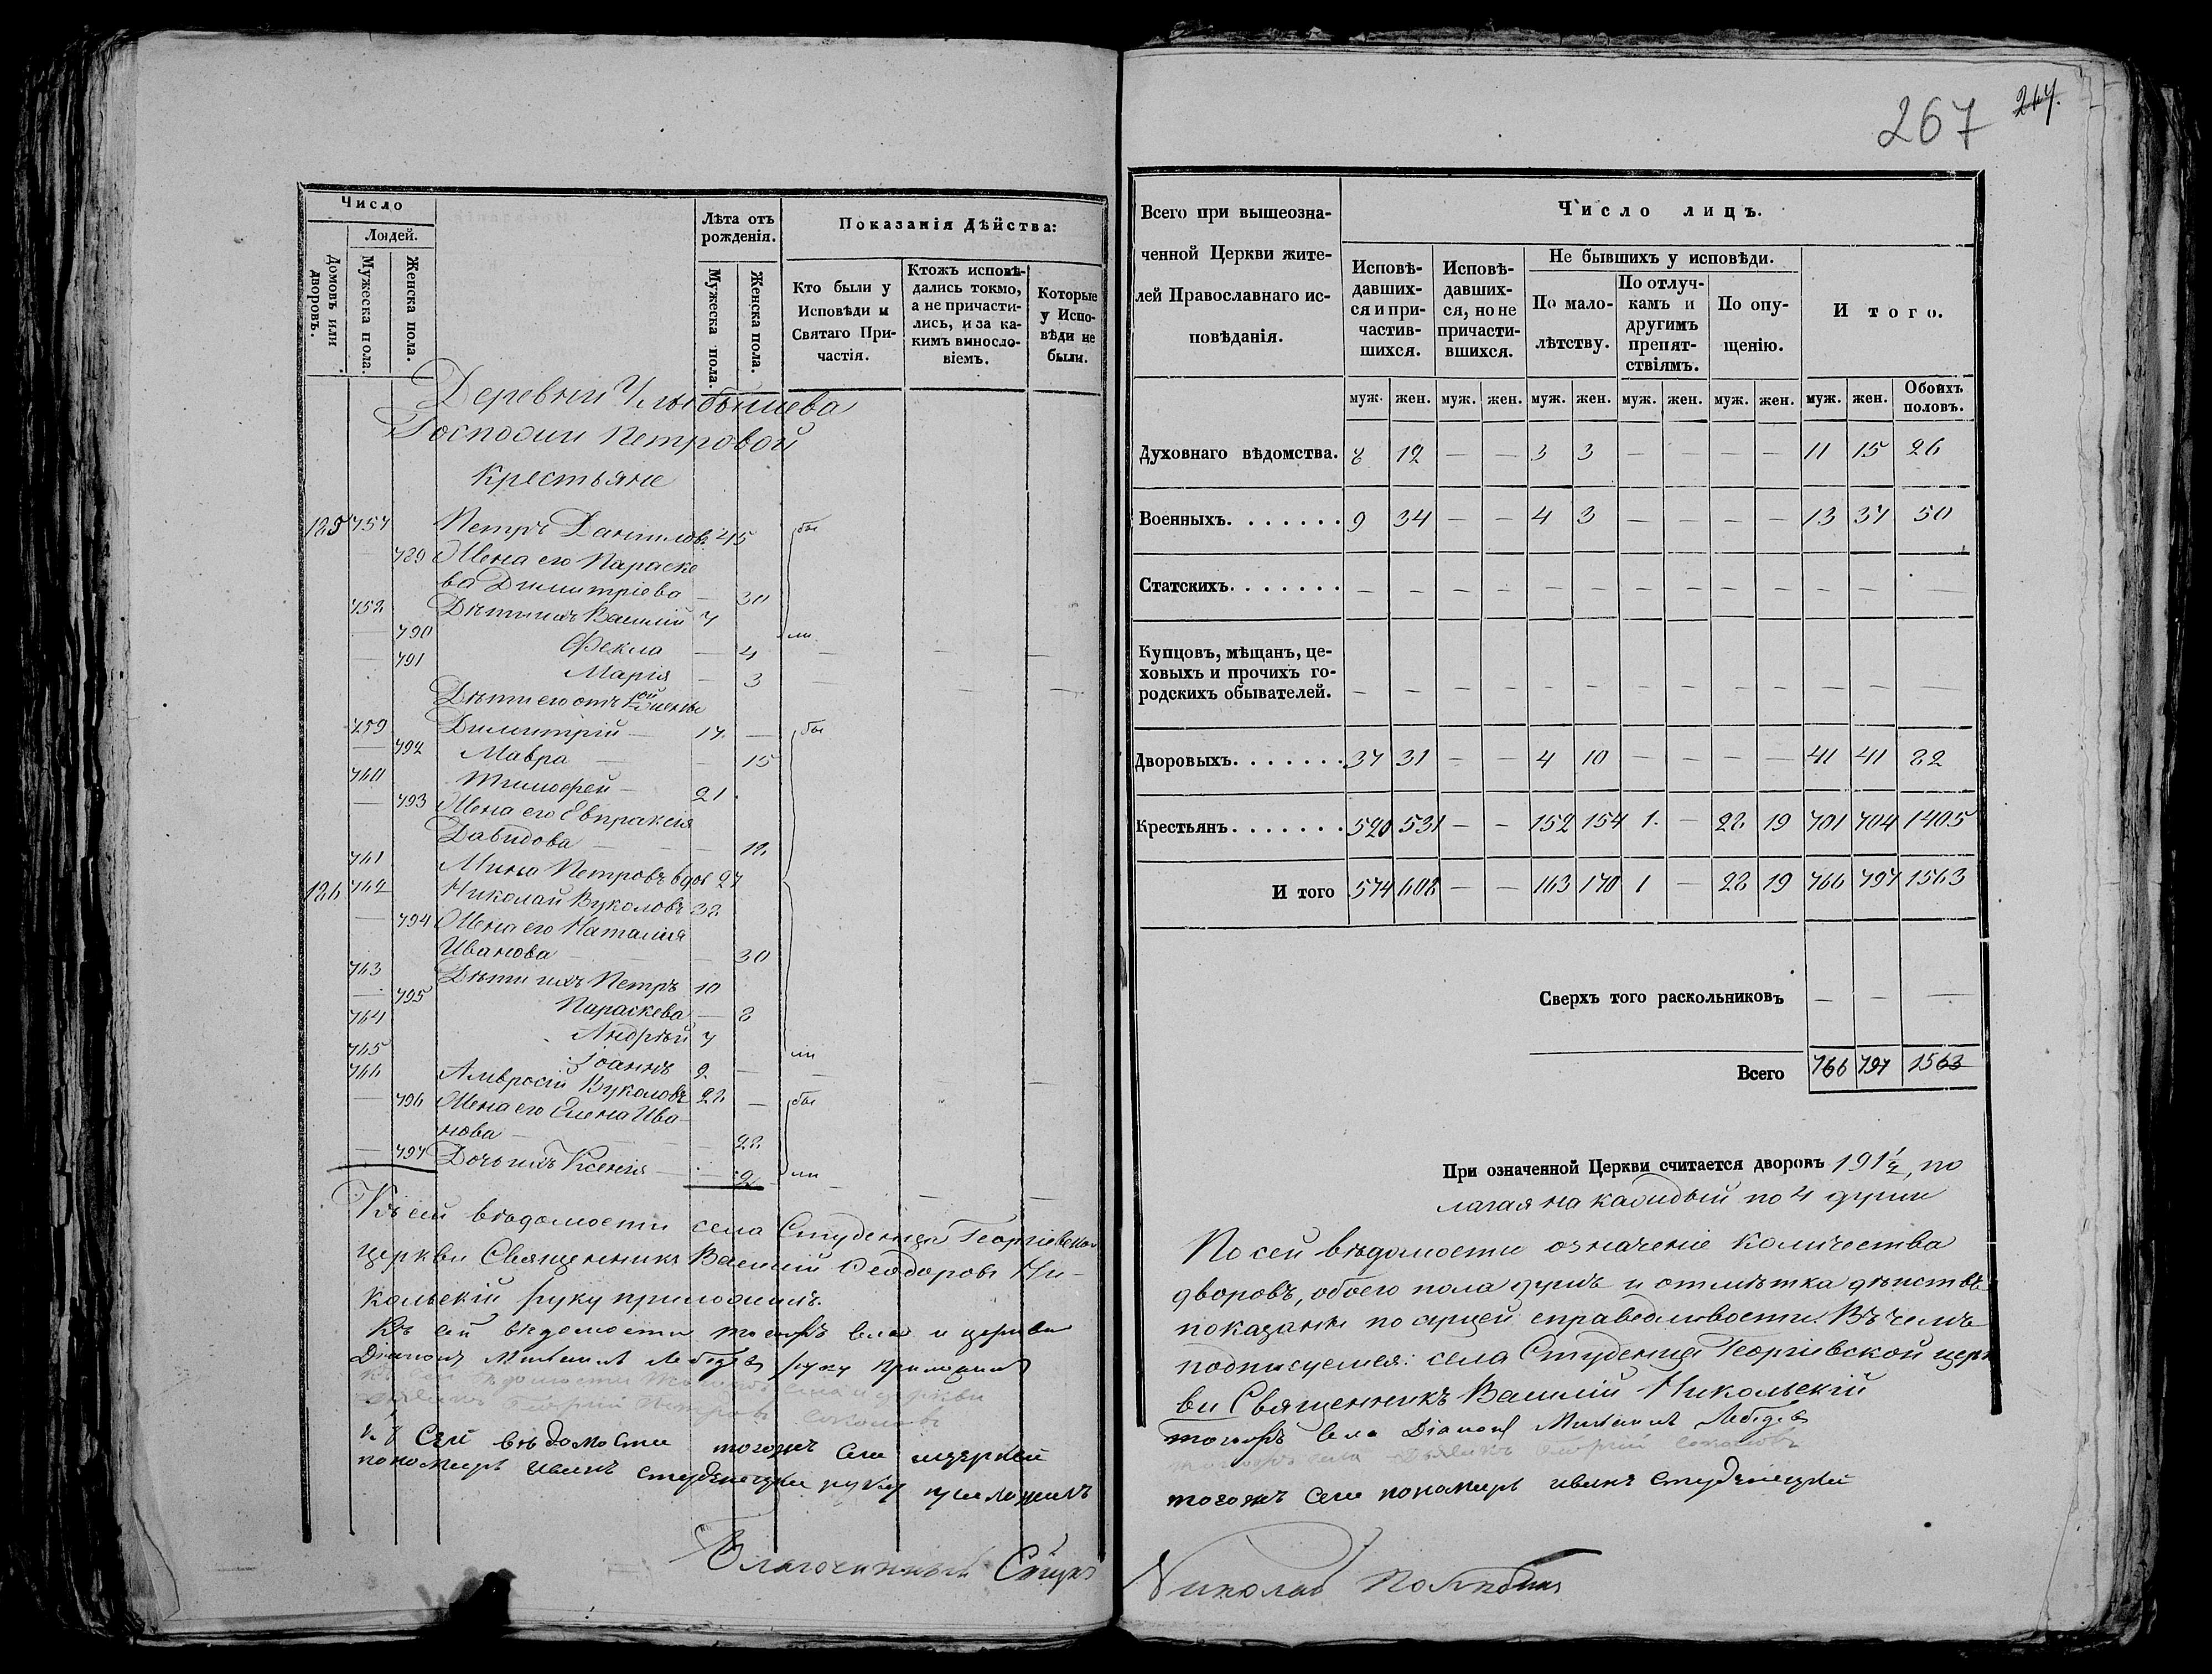 Число
Людей.
Домовъ или дворовъ.
Мужеска пола.
Женска пола.
Лѣта отъ рожденія.
Мужеска пола.
Женска пола.
Показанія Дѣйства:
Кто были у Исповѣди и Святаго Причастія.
Ктожъ исповѣ-
дались токмо,
а не причасти-
лись, и за ка-
кимъ винослo-
віемъ.
Которые
у Испо-
вѣди не
были.
Деревни
Господжи Петровой
Крестьяне
185 757 Петръ Даниловъ 45 бы
789 Жена его Параске
ва Димитріева — 30
758 Дѣти ихъ Василій 7
790 Фекла — 4 ли
791 Марія — 3
Дѣти его отъ 1ой жены
759 Димитрій — 17 — бы
792 Мавра — 15
760 Тимофей — 21
793 Жена его Евпраксія
Давидова — 18
761 Мина Петровъ вдов 27
186 762 Николай Вуколовъ 38
794 Жена его Наталия
Иванова — 30
763 Дѣти ихъ Петръ 10
795 Параскева — 8
764 Андрѣй 7 ли
765 Іоаннъ 2 —
766 Амвросій Вуколовъ 28 — бы
796 Жена его Елена Ива
нова — 28
797 Дочь ихъ Ксенія — 2 ли
Къ сей вѣдомости села Студенца Георгіевской
церкви Священникъ Василій Феодоровъ Ни-
кольскій руку приложилъ.
Къ сей вѣдомости тогожъ села и церкви
Diaконъ Михаилъ Лебедевъ руку приложилъ
къ сей вѣдомости тогожъ села и церкви
Петровъ Соколовъ
къ сей вѣдомости тогожъ села церкви
пономарь иванъ студенецкій руку приложилъ
Благочинный Спицкъ
267 247.
Всего при вышеозна-
ченной Церкви жите-
лей Православнаго ис-
повѣданія.
Число лицъ.
Исповѣ-
давших-
ся и при-
частив-
шихся.
Исповѣ-
давших-
ся, но не
причасти-
вшихся.
Не бывшихъ у исповѣди.
По мало-
лѣтству.
По отлуч-
камъ и
другимъ
препят-
ствіямъ.
По опу-
щенію.
И того.
муж. жен. муж. жен. муж. жен. муж. жен. муж. жен. муж. жен. Обоихъ половъ.
Духовнаго вѣдомства. 8 12 — — 3 3 — — — — 11 15 26
Военныхъ. . . . . . . 9 34 — — 4 3 — — — — 13 37 50
Статскихъ. . . . . . . — — — — — — — — — — — — —
Купцовъ, мѣщанъ, це-
ховыхъ и прочихъ го-
родскихъ обывателей. — — — — — — — — — — — — —
Дворовыхъ. . . . . . . 37 31 — — 4 10 — — — — 41 41 82
Крестьянъ. . . . . . . 520 531 — — 152 154 1. — 28 19 701 704 1405
И того 574 608 — — 163 170 1 — 28 19 766 797 1563
Сверхъ того раскольниковъ — — —
Всего 766 797 1563
При означенной Церкви считается дворовъ 191½, по
лагая на каждый по 4 души
По сей вѣдомости означеніе количества
дворовъ, обоего пола душъ и отмѣтка дѣйствъ
показаны по сущей справедливости. Въ чемъ
подписуемся: села Студенца Георгіевской церк
ви Священникъ Василій Никольскій
тогожъ села Diaконъ Михаилъ Лебедевъ
тогожъ села Соколовъ
тогожъ села пономарь иванъ студенецкій
Николай